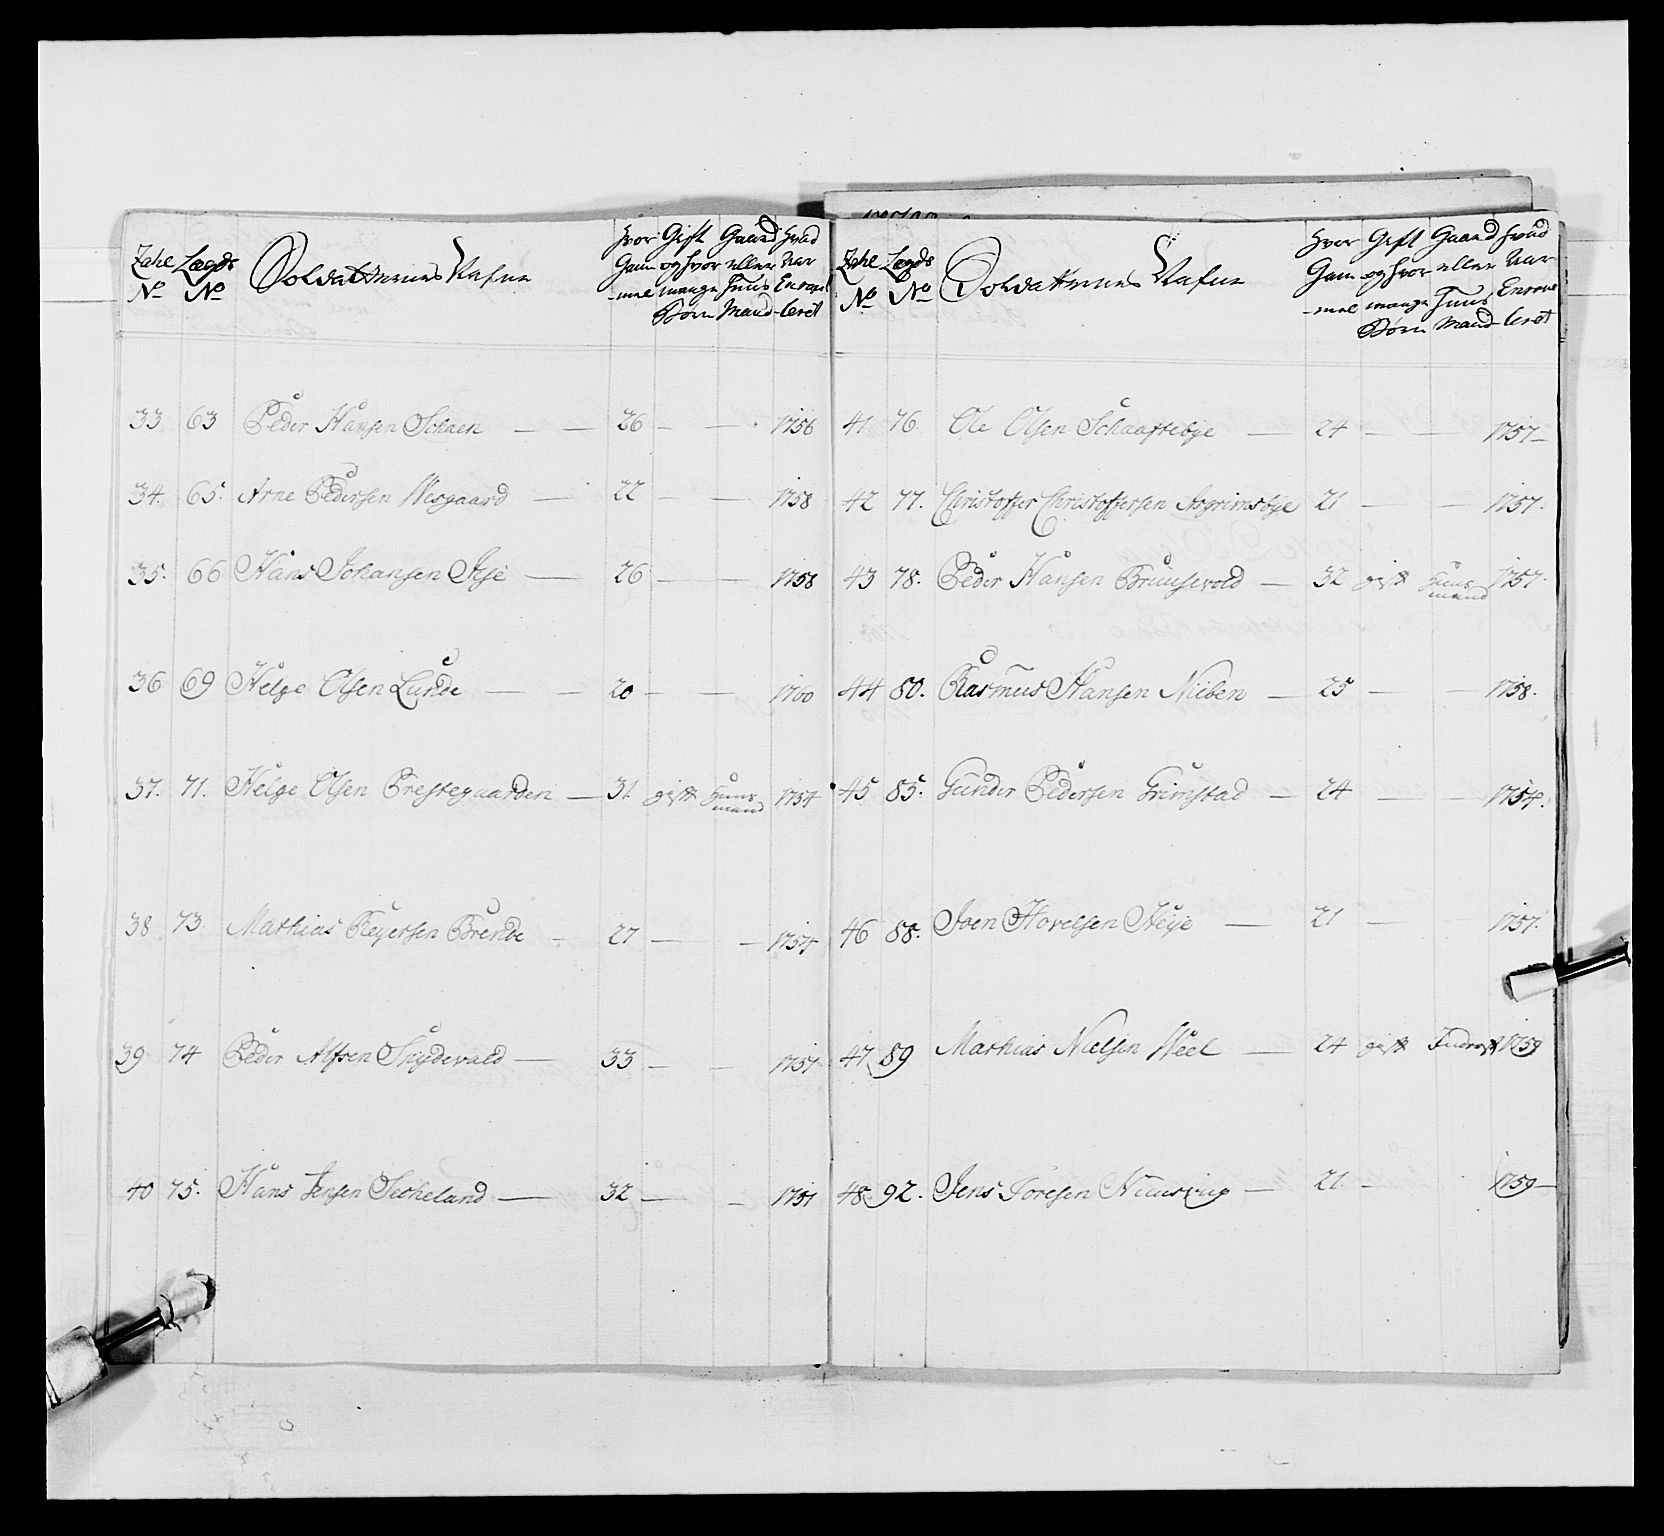 Zahl No Lægds No Soldatternes Nafne Hvor Gammel Gift og hvor mange Børn Gaard eller Huus Mand Hvad Aar Enroulleret
33 63 Peder Hansen Schaen — — 26 — — 1756
34. 65. Arne Pedersen Wisgaard — 22 — — 1758
35. 66 Hans Johansen — 26 — — 1758
36 69 Helge Olsen Lunde — — 20 — — 1760
37. 71. Helge Olsen Prestegaarden — 31 gift Huus mand 1754
38 73. Mathias Reyersen Brende — 27 — — 1754
39 74 Peder Alfsen — 33 — — 1757
40 75. Hans Jensen Setheland — 32 — — 1751
Zahl No Lægds No Soldatternes Nafne Hvor Gammel Gift og hvor mange Børn Gaard eller Huus Mand Hvad Aar Enroulleret
41 76. Ole Olsen Schaaftebye — 24 — — 1757
42 77. Christoffer Christoffersen Asgrimsbye 21 — — 1757.
43 78. Peder Hansen Bruusevold — 32 gift Huus mand 1757.
44 80. Rasmus Hansen Nieben — 25 — — 1758.
45 85. Gunder Pedersen Grimstad — 24 — — 1754.
46 88. Joen Hovelsen — 21 — 1757.
47 89 Mathias Nielsen Weel — 24 gift 1759
48 92. Jens Toresen — 21 — 1759